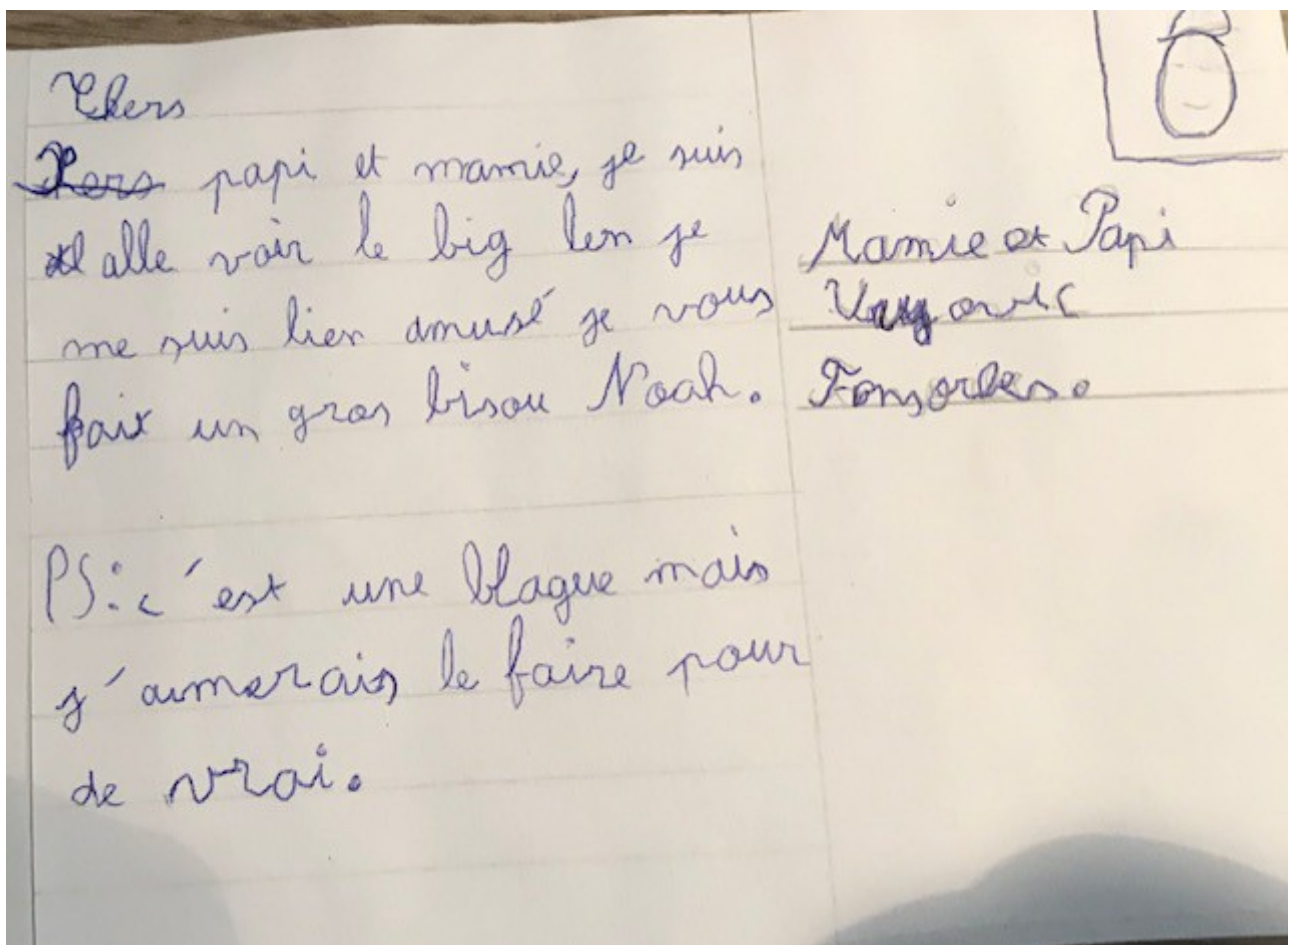 Chers
Kers papi et mamie, je suis
alle voir le big ben je
me suis bien amusé je vous
fait un gros bisou Noah.
PS: c'est une blague mais
j'aimerais le faire pour
de vrai.
Mamie et Papi
Fonsorbes.